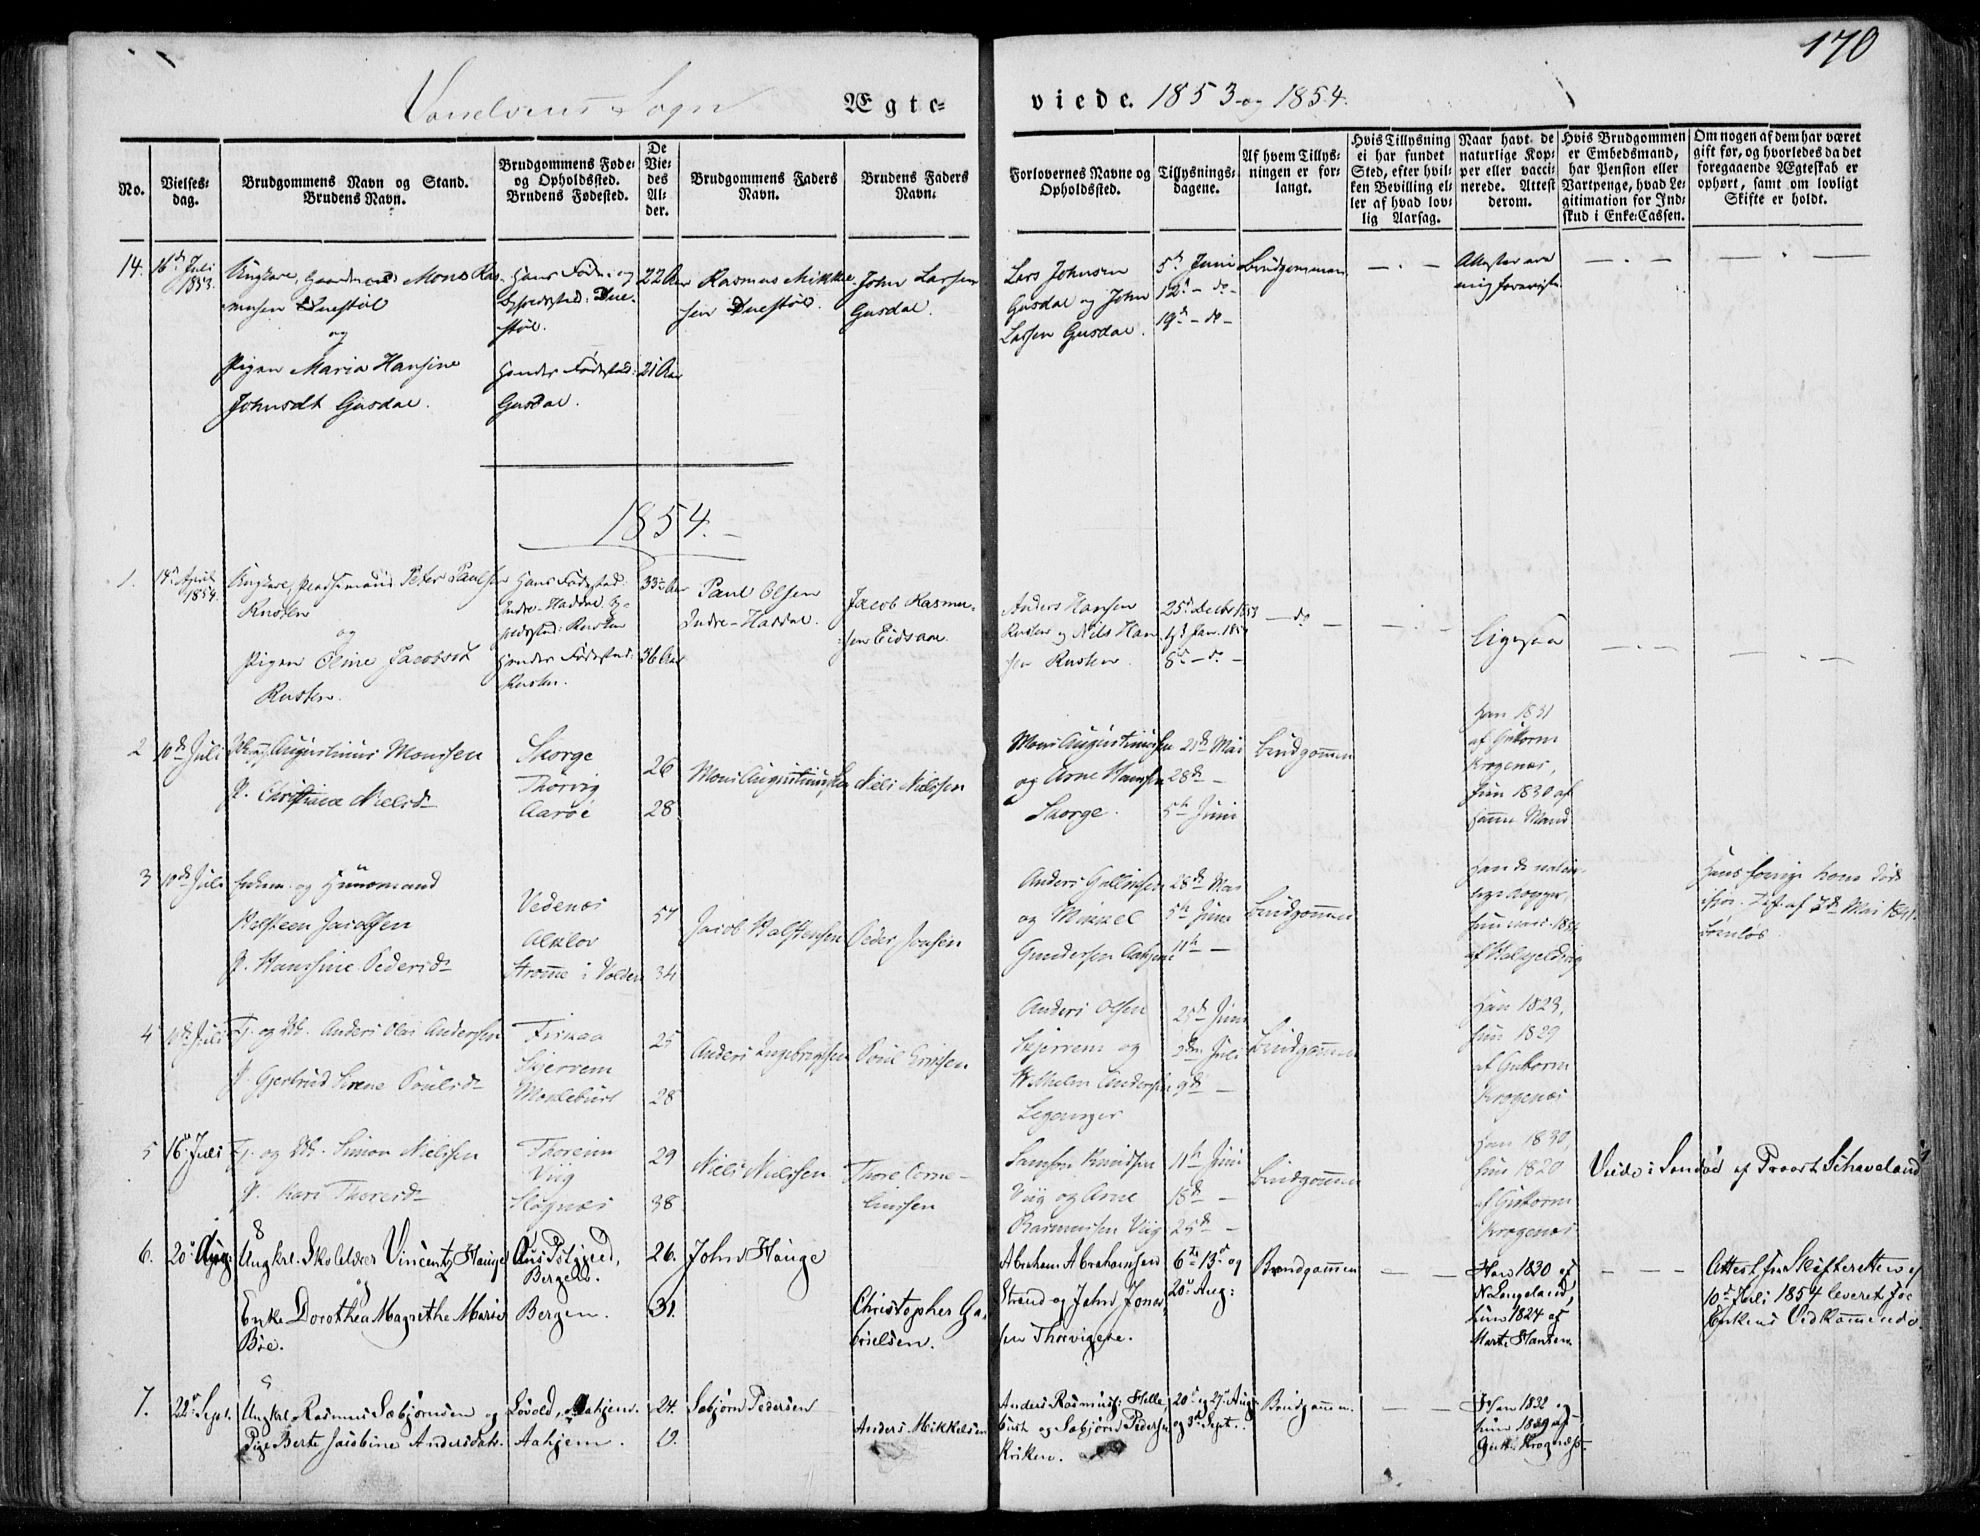 170
Vandelvens Sogn Ægte-
viede. 1853 og 1854.
No.
Vielses-
dag.
Brudgommens Navn og Stand.
Brudens Navn.
Brudgommens Føde-
og Opholdssted.
Brudens Fødested.
De
Vie-
des
Al-
der.
Brudgommens Faders
Navn.
Brudens Faders
Navn.
Forlovernes Navne og
Opholdssted.
Tillysnings-
dagene.
Af hvem Tillys-
ningen er for-
langt.
Hvis Tillysning
ei har fundet
Sted, efter hvil-
ken Bevilling el-
ler af hvad lov-
lig Aarsag.
Naar havt de
naturlige Kop-
per eller vacci-
nerede. Attest
derom.
Hvis Brudgommen
er Embedsmand,
har Pension eller
Vartpenge, hvad Le-
gitimation for Ind-
skud i Enke-Cassen.
Om nogen af dem har været
gift før, og hvorledes da det
foregaaende Ægteskab er
ophørt, samt om lovligt
Skifte er holdt.
14.
16de Juli
1853.
Ungkarl, Gaardmand Mons Ras-
musen Duestøl
og
Pigen Maria Hansine
Johnsdt Gusdal.
Hans Føde- og
Opholdssted: Due-
støl.
Hendes Fødested:
Gusdal.
22 Aar
21 Aar
Rasmus Mikkel-
sen Duestøl.
John Larsen
Gusdal.
Lars Johnsen
Gusdal og John
Larsen Gusdal.
5te Juni
12te - do -
19de - do -
Brudgommen
Attester ere
mig foreviste.
1854.
1.
17de April
1854.
Ungkarl, Pladsemand Peter Paulsen
Rusten
og
Pigen Oline Jacobsdt
Rusten.
Hans Fødested:
Indre-Haddal. Op-
holdssted: Rusten
Hendes Fødested:
Rusten.
33 Aar
36 Aar
Paul Olsen
Indre-Haddal.
Jacob Rasmu-
sen Eidsaa.
Anders Hansen
Rusten og Nils Han-
sen Rusten.
25de Decbr 1853
1ste Jan. 1854
8de - do -
do
Ligesaa
2
10de Juli
Augustinus Monssen
P. Christiane Nielsd
Skorge
Thorvig
Aarøe
26
28
Mons Augustinussen
Niels Nielssen
Mons Augustinussen
og Arne Hanssen
Skorge.
21de Mai
28de -
5te Juni
Brudgommen
Han 1831
af Guttorm
Krogenæs,
hun 1830 af
samme Mand
3
10de Juli
Enkem. og Huusmand
Halsteen Jacobsen
P. Hanssine Pedersd
Vedenæs
Aleklov
Strømme i Volden
57
34
Jacob Halstensen
Peder Jonsen
Anders
og Mikkel
Gundersen Aahjem
28de Mai
5te Juni
11te -
Brudgommen
Han de natur-
lige Kopper,
hun vacc. 1834
af
Hans forrige Kone døde
af 7de Mai 1841.
børnløs.
4
10de Juli
Ij. og Ldb. Anders Olai Anderssen
P. Gjertrud Sirene Poulsd
Fiskaa
Skjervem
Mosleburt
25
28
Anders Ingebrigtsen
Poul Erikssen
Anders Olsen
Skjervem og
Wilhelm Andersen
Leganger
25de Juni
2den Juli
9de -
Brudgommen
Han 1823,
hun 1829
af Guttorm
Krogenæs
5
16de Juli
Ij. og Ldb. Simon Nielssen
P. Kari Thoresd
Thoreim
Viig
Slagnæs
29
38
Niels Nielssen
Thore Corne-
liussen
Samson Knudsen
Viig og Arne
Rasmussen Viig
11te Juni
18de -
25de -
Brudgommen
Han 1830,
hun 1820
af Guttorm
Krogenæs
Viede i Sandøe af Provst Schaveland
6.
20de Aug:
Ungkrl. Skolelærer Vincentz Hauge
og
Enke Dorothea Magrethe Marie
Bøe.
Bergen.
Bergen.
26.
31.
John Hauge
Christopher Ga-
brielsen.
Abraham Abrahamsen
Strand og John Jonas-
sen Thorvigene.
6te 13de og
20de Aug:
Brudgommen
Han 1830 af
N. Langeland,
hun 1824 af
Marte Hansen
Attest fra Skifteretten af
10de Juli 1854 leveret for
Enkens Vedkommende.
7.
22de Sept.
Ungkrl. Rasmus Sæbjørnsen og
Pige Berte Jacobine Andersdatt.
Løvold, Aahjem.
Aahjem.
24.
19.
Sæbjørn Pedersen
Anders Mikkelsen
Anders Rasmuss: Helle-
bust og Sæbjørn Pedersen
Kriken.
20de og 27de Aug:
og 3de Sept.
Brudgommen.
Han 1832 og
hun 1839 af
Gutt. Krognæs.